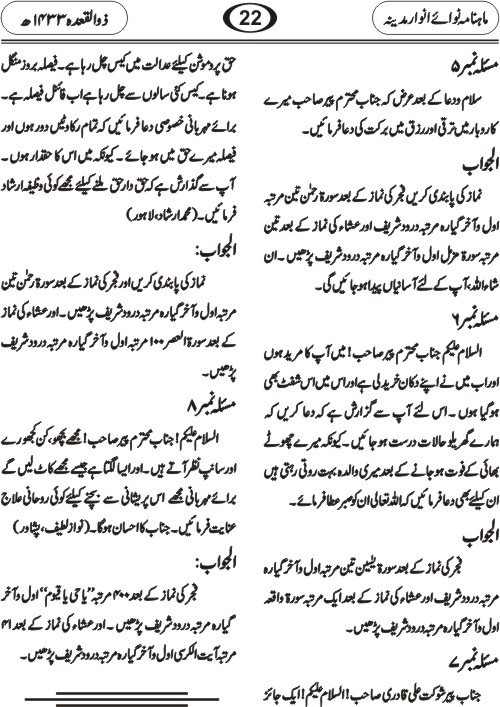 ماہنامہ نوائے انوار مدینہ
22
ذوالقعدہ ۱۴۳۳ھ
مسئلہ نمبر ۵
سلام و دعا کے بعد عرض کہ جناب محترم پیر صاحب میرے
کاروبار میں ترقی اور رزق میں برکت کی دعا فرمائیں۔
الجواب
نماز کی پابندی کریں فجر کی نماز کے بعد سورۃ رحمٰن تین مرتبہ
اول و آخر گیارہ مرتبہ درود شریف اور عشاء کی نماز کے بعد تین
مرتبہ سورۃ مزمل اول و آخر گیارہ مرتبہ درود شریف پڑھیں۔ ان
شاء اللہ، آپ کے لئے آسانیاں پیدا ہو جائیں گی۔
مسئلہ نمبر ۶
السلام علیکم جناب محترم پیر صاحب! میں آپ کا مرید ہوں
اور اب میں نے اپنے دکان خرید لی ہے اور اس میں اس شفٹ بھی
ہو گیا ہوں۔ اس لئے آپ سے گزارش ہے کہ دعا کریں کہ
ہمارے گھریلو حالات درست ہو جائیں۔ کیونکہ میرے چھوٹے
بھائی کے فوت ہو جانے کے بعد میری والدہ بہت روتی رہتی ہیں
ان کیلئے بھی دعا فرمائیں کہ اللہ تعالٰی ان کو صبر عطا فرمائے۔
الجواب
فجر کی نماز کے بعد سورۃ یٰسین تین مرتبہ اول و آخر گیارہ
مرتبہ درود شریف اور عشاء کی نماز کے بعد ایک مرتبہ سورۃ واقعہ
اول و آخر گیارہ مرتبہ درود شریف پڑھیں۔
مسئلہ نمبر ۷
جناب پیر شوکت علی قادری صاحب! السلام علیکم! ایک جائز
حق پروموشن کیلئے عدالت میں کیس چل رہا ہے۔ فیصلہ بروز منگل
ہونا ہے۔ کیس کئی سالوں سے چل رہا ہے اب فائنل فیصلہ ہے۔
برائے مہربانی خصوصی دعا فرمائیں کہ تمام رکاوٹیں دور ہوں اور
فیصلہ میرے حق میں ہو جائے۔ کیونکہ میں اس کا حقدار ہوں۔
آپ سے گذارش ہے کہ حق دار حق ملنے کیلئے مجھے کوئی وظیفہ ارشاد
فرمائیں۔ (محمد ارشاد، لاہور)
الجواب:
نماز کی پابندی کریں اور فجر کی نماز کے بعد سورۃ رحمٰن تین
مرتبہ اول و آخر گیارہ مرتبہ درود شریف پڑھیں۔ اور عشاء کی نماز
کے بعد سورۃ العصر ۱۰۰ مرتبہ اول و آخر گیارہ مرتبہ درود شریف
پڑھیں۔
مسئلہ نمبر ۸
السلام علیکم! جناب محترم پیر صاحب! مجھے بچھو، کن کھجورے
اور سانپ نظر آتے ہیں۔ اور ایسا لگتا ہے جیسے مجھے کاٹ لیں گے
برائے مہربانی مجھے اس پریشانی سے بچنے کیلئے کوئی روحانی علاج
عنایت فرمائیں۔ جناب کا احسان ہو گا۔ (نواز لطیف، پشاور)
الجواب:
فجر کی نماز کے بعد ۴۰۰ مرتبہ "یا حی یا قیوم" اول و آخر
گیارہ مرتبہ درود شریف پڑھیں۔ اور عشاء کی نماز کے بعد ۴۱
مرتبہ آیت الکرسی اول و آخر گیارہ مرتبہ درود شریف پڑھیں۔